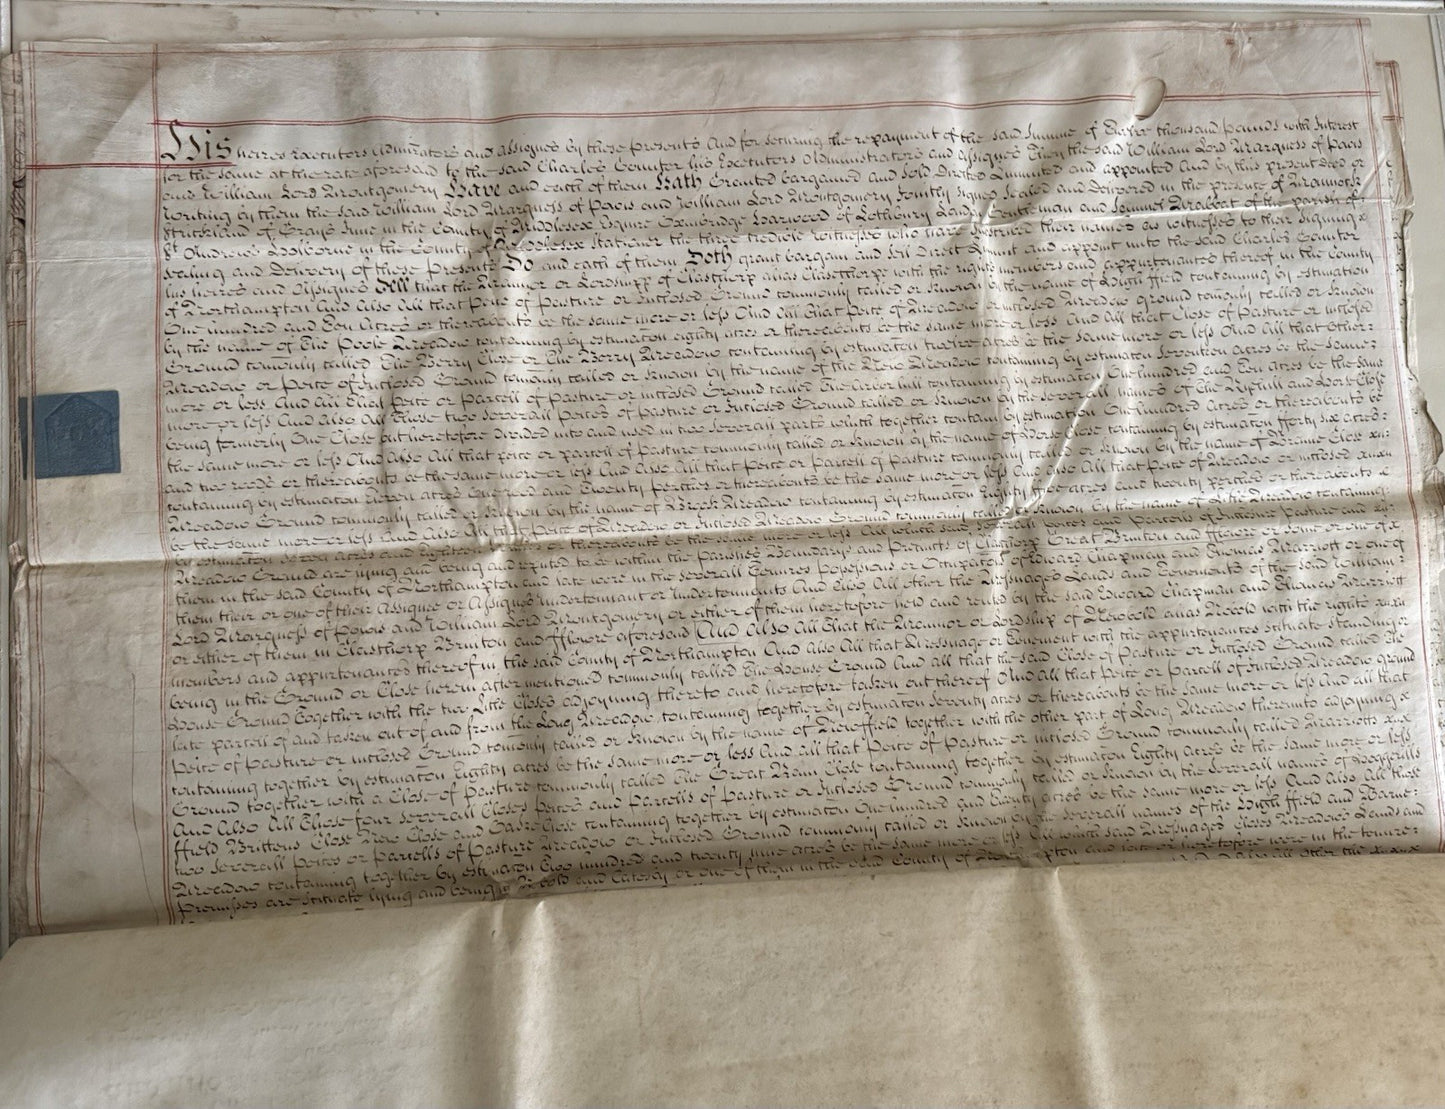 His heires Executors Administrators and Assignes by these presents And for securing the repayment of the said Summe of thousand pounds with Interest
for the same at the rate aforesaid to the said Charles Counter his Executors Administrators and Assignes They the said William Lord Marquess of Powis
and William Lord Montgomery Have and each of them Hath Granted bargained and sold Directed Limmitted and appointed And by this present deed or
Writing by them the said William Lord Marquess of Powis and William Lord Montgomery Jointly Signed Sealed and Delivered in the presence of
Strickland of Grays Inne in the County of Middlesex Esquire Harwood of Lothbury London Gentleman and Samuel of the parish of
St Andrews Holborne in the County of Middlesex Stationer the three Credible Witnesses who have subscribed their names as witnesses to their Signing x
Sealing and Delivery of these Presents Do and each of them Doth grant bargain and sell Direct Limit and appoint unto the said Charles Counter
his heires and Assignes All that the Mannor or Lordshipp of Clasthorp alias Clasethorpe with the rights members and appurtenances thereof in the County
of Northampton And also All that Peice of Pasture or Inclosed Ground commonly called or known by the name of High ffield containing by estimation
One hundred and Ten Acres or thereabouts be the same more or less And All that Peice of Meadow or Inclosed Meadow ground comonly called or known
by the name of The Poole Meadow containing by estimation eighty acres or thereabouts be the same more or less And All that Close of Pasture or inclosed
Ground comonly called The Berry Close or The Berry Meadow containing by estimation twelve acres be the same more or less And All that Other
Meadow or Peice of Inclosed Ground comonly called or known by the name of the New Meadow containing by estimation Seventeen acres be the same
more or less And All that Peice or Parcell of Pasture or inclosed Ground called The Arbor hill containing by estimation One hundred and Ten acres be the same
more or less And also All those two severall Peices of Pasture or Inclosed Ground called or known by the severall names of The and Horse Close
being formerly One Close but heretofore divided into and used in two severall parts which together contain by estimation One hundred Acres or thereabouts be
the same more or less And also All that peice or parcell of Pasture commonly called or known by the name of Horse Close containing by estimation fforty six acres
and two roods or thereabouts be the same more or less And also All that Peice or Parcell of Pasture commonly called or known by the name of Close
containing by estimation Eleven acres One rood and Twenty perches or thereabouts be the same more or less And also All that Peice of Meadow or inclosed
Meadow Ground commonly called or known by the name of Brook Meadow containing by estimation Eighty acres and twenty perches or thereabouts x
be the same more or less And also All that Peice of Meadow or Inclosed Meadow Ground commonly called or known by the name of Meadow containing
by estimation Seven acres and or thereabouts be the same more or less All which said severall peices and Parcells of Inclosure Pasture and
Meadow Ground are lying and being and reputed to be within the Parishes Boundarys and Precincts of Clasthorp Great Brinton and fflowre or some or one of x
them in the said County of Northampton and late were in the severall Tenures Possessions or Occupations of Edward Chapman and Thomas Marriott or one of
them their or one of their Assignee or Assignes Undertennant or Undertennants And also All other the Messuages Lands and Tenements of the said William
Lord Marquess of Powis and William Lord Montgomery or either of them heretofore held and rented by the said Edward Chapman and Thomas Marriott
or either of them in Clasthorp Brinton and fflowre aforesaid And also All that the Mannor or Lordship of Newbold alias Nobold with the rights
members and appurtenances thereof in the said County of Northampton And also All that Messuage or Tenement with the appurtenances situate standing or
being in the Ground or Close herein after mentioned commonly called The House Ground And all that the said Close of Pasture or Inclosed Ground called The
House Ground together with the two Little Closes adjoyning thereto and heretofore taken out thereof And all that Peice or Parcell of Inclosed Meadow ground
late parcell of and taken out of and from the Long Meadow containing together by estimation Seventy acres or thereabouts be the same more or less And all that
Peice of Pasture or inclosed Ground comonly called or known by the name of together with the other part of Long Meadow thereunto adjoyning x
containing together by estimation Eighty acres be the same more or less And all that Peice of Pasture or inclosed Ground commonly called Marriotts
Ground together with a Close of Pasture commonly called The Great Close containing together by estimation Eighty acres be the same more or less
And Also All those four severall Closes Peices and Parcells of Pasture or Inclosed Ground commonly called or known by the severall names of
ffield Brittens Close New Close and Close containing together by estimation One hundred and Twenty acres be the same more or less And also All those
two severall Peices or Parcells of Pasture Meadow or Inclosed Ground commonly called or known by the severall names of the High ffield and
Meadow containing together by estimation Two hundred and twenty nine acres be the same more or less All which said Messuages Closes Meadows Lands and
Premisses are situate lying and being in Nobold and Catesby or one of them in the said County of Northampton and late or heretofore were in the tenure